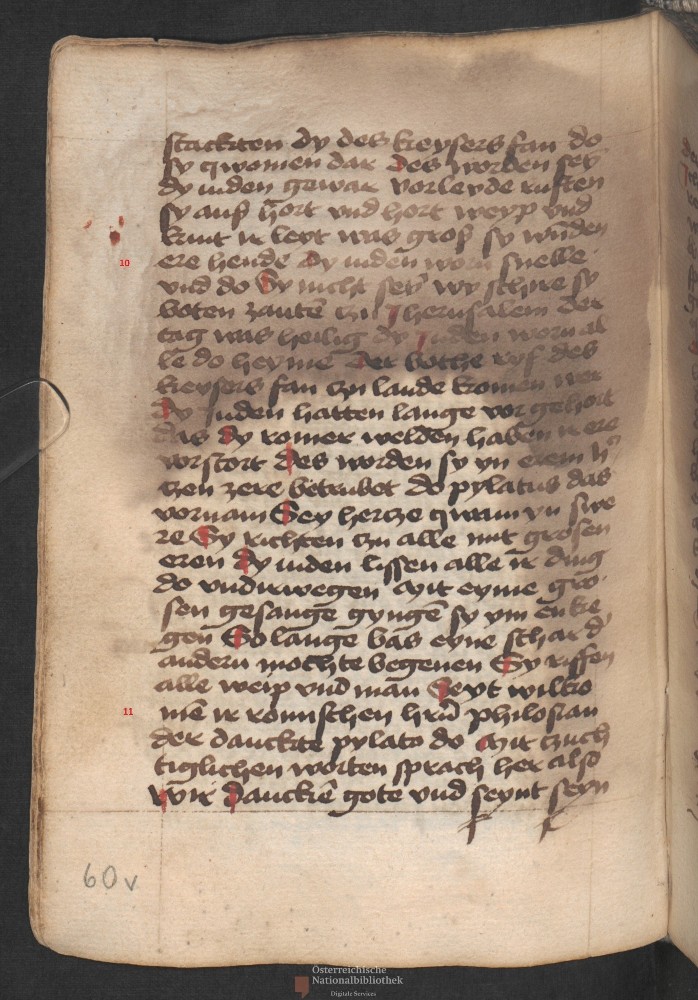 stackten dy des keysers fan do
sy qwomen dar des worden ser
dy iuden gewar vorleyde ruften
sy auß hort vnd hort weyp vnd
kint ir leyt was groß sy wnden
10 ere hende Dy iuden worn snelle
vnd do Sy nicht sey wy schire sy
boten zantē czu Jherusalem der
tag was heilig dy Juden worn al
le do heyme Der bothe rif des
keysers fan czu lande komen wer
Dy Juden hatten lange vor gehort
das dy romer welden haben ir ere
vorstort des worden sy yn erem h
czen zere betrubet do pylatus das
vornam Sey hercze qwam yn swe
re Sy richten czu alle mit grosen
eren dy iuden lissen alle ir ding
do vndirwegen Mit eyme gro
sen gesange gyngē sy ym enke
gen So lange bas eyne schar d'
andern mochte begenen Sy riffen
alle weip vnd man Seyt wilko
11 mē ir romischen hrn philosian
der danckte pylato do Mit czuch
tiglichen worten sprach her also
Wir danckē gote vnd seynt seyn
60v
Österreichische
Nationalbibliothek
Digitale Services